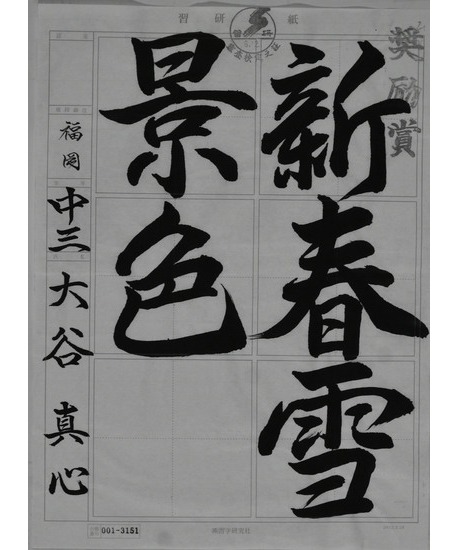 習研紙
奨励賞
新春雪
景色
福岡
中三 大谷 真心
001-3151